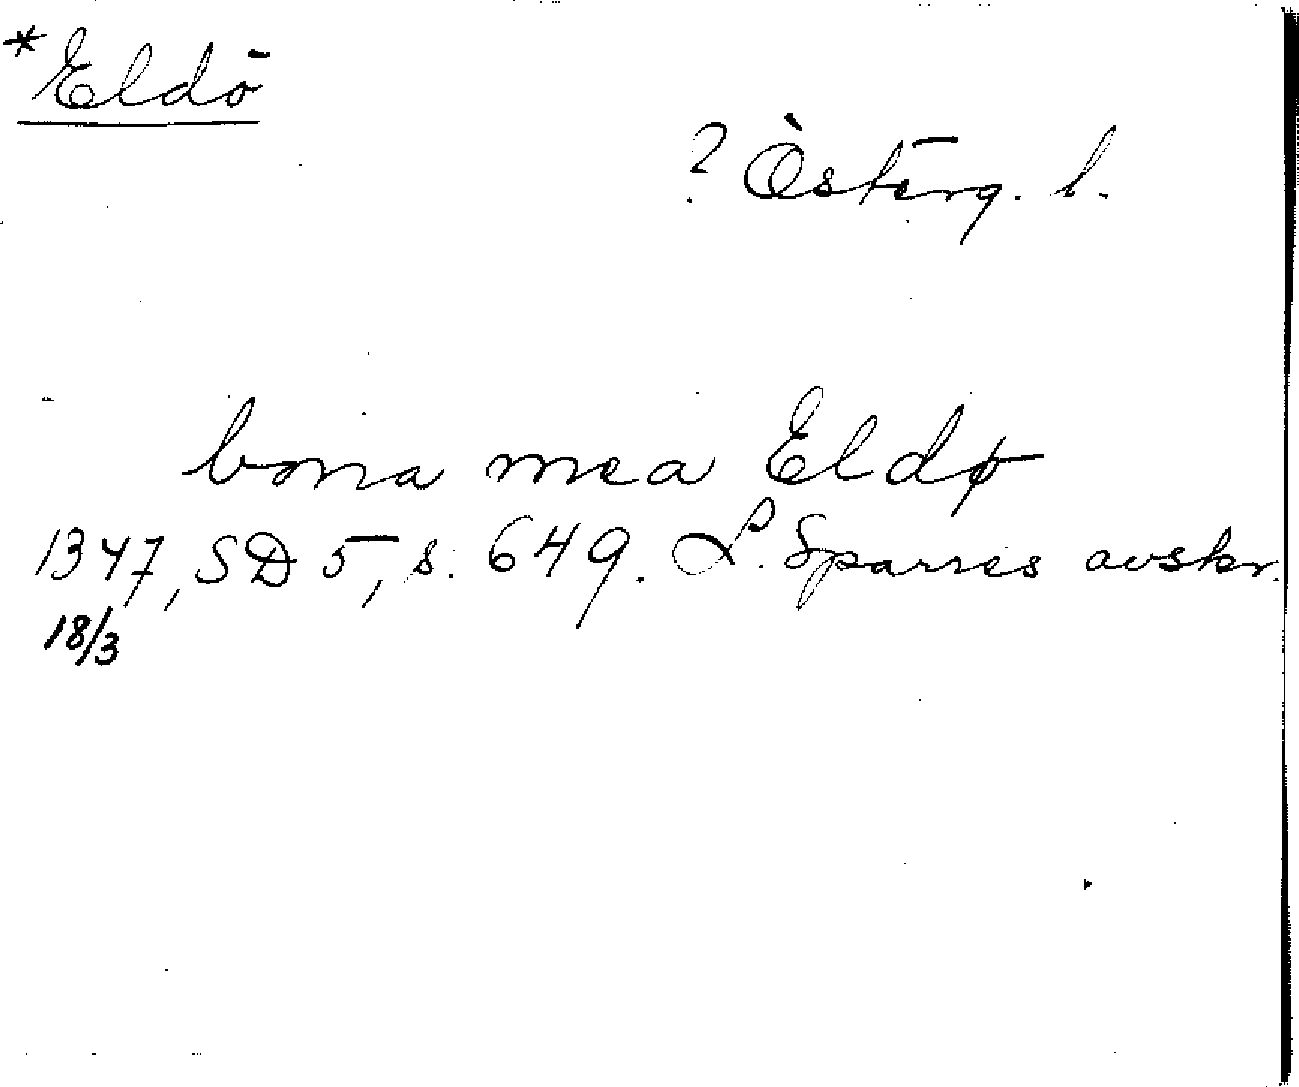 *Eldö
? Österg. l.
bona mea Eldø
1347, SD 5, s. 649. L. Sparres avskr.
18/3